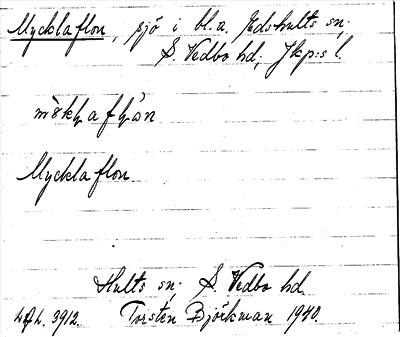 Mycklaflon, sjö i bl.a. Edshults sn,
S. Vedbo hd, Jkp:s l.
Mycklaflon.
Hults sn. S. Vedbo hd.
3912. Torsten Björkman 1940.